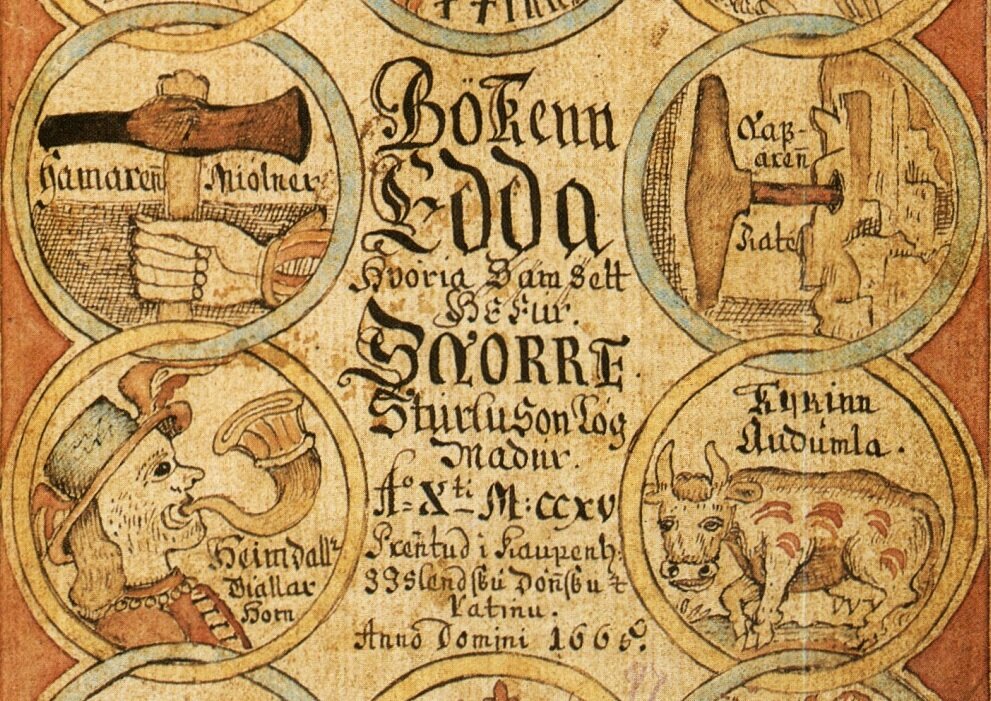 Hamareñ Miolner
Bökenn
Edda
Hvoria Sam Sett
Hefur.
SNORRE
Sturlu Son Lög
Madur.
Aº Xti M:ccxv
Prentud i Kaupenh:
J Jslendsku Donsku &
Latinu.
Anno Domini 1665
Heimdallr
Giallar
Horn
Nap-
aren
Rate
Kyrinn
Audumla.